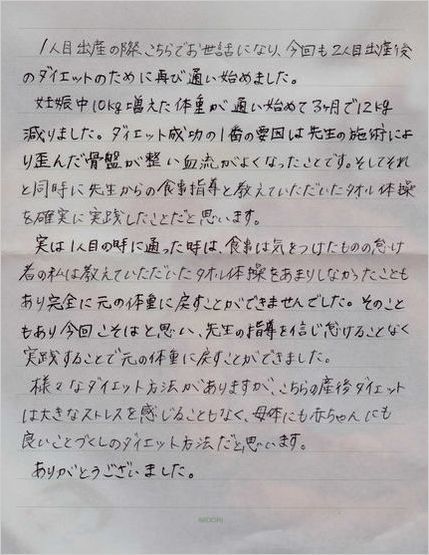 1人目出産の際、こちらでお世話になり、今回も2人目出産後
のダイエットのために再び通い始めました。
妊娠中10kg増えた体重が通い始めて3ヶ月で12kg
減りました。ダイエット成功の1番の要因は先生の施術によ
り歪んだ骨盤が整い血流がよくなったことです。そしてそれ
と同時に先生からの食事指導と教えていただいたタオル体操
を確実に実践したことだと思います。
実は1人目の時に通った時は、食事は気をつけたものの怠け
者の私は教えていただいたタオル体操をあまりしなかったことも
あり完全に元の体重に戻すことができませんでした。そのこと
もあり今回こそはと思い、先生の指導を信じ怠けることなく
実践することで元の体重に戻すことができました。
様々なダイエット方法がありますが、こちらの産後ダイエット
は大きなストレスを感じることもなく、母体にも赤ちゃんにも
良いことづくしのダイエット方法だと思います。
ありがとうございました。
MIDORI